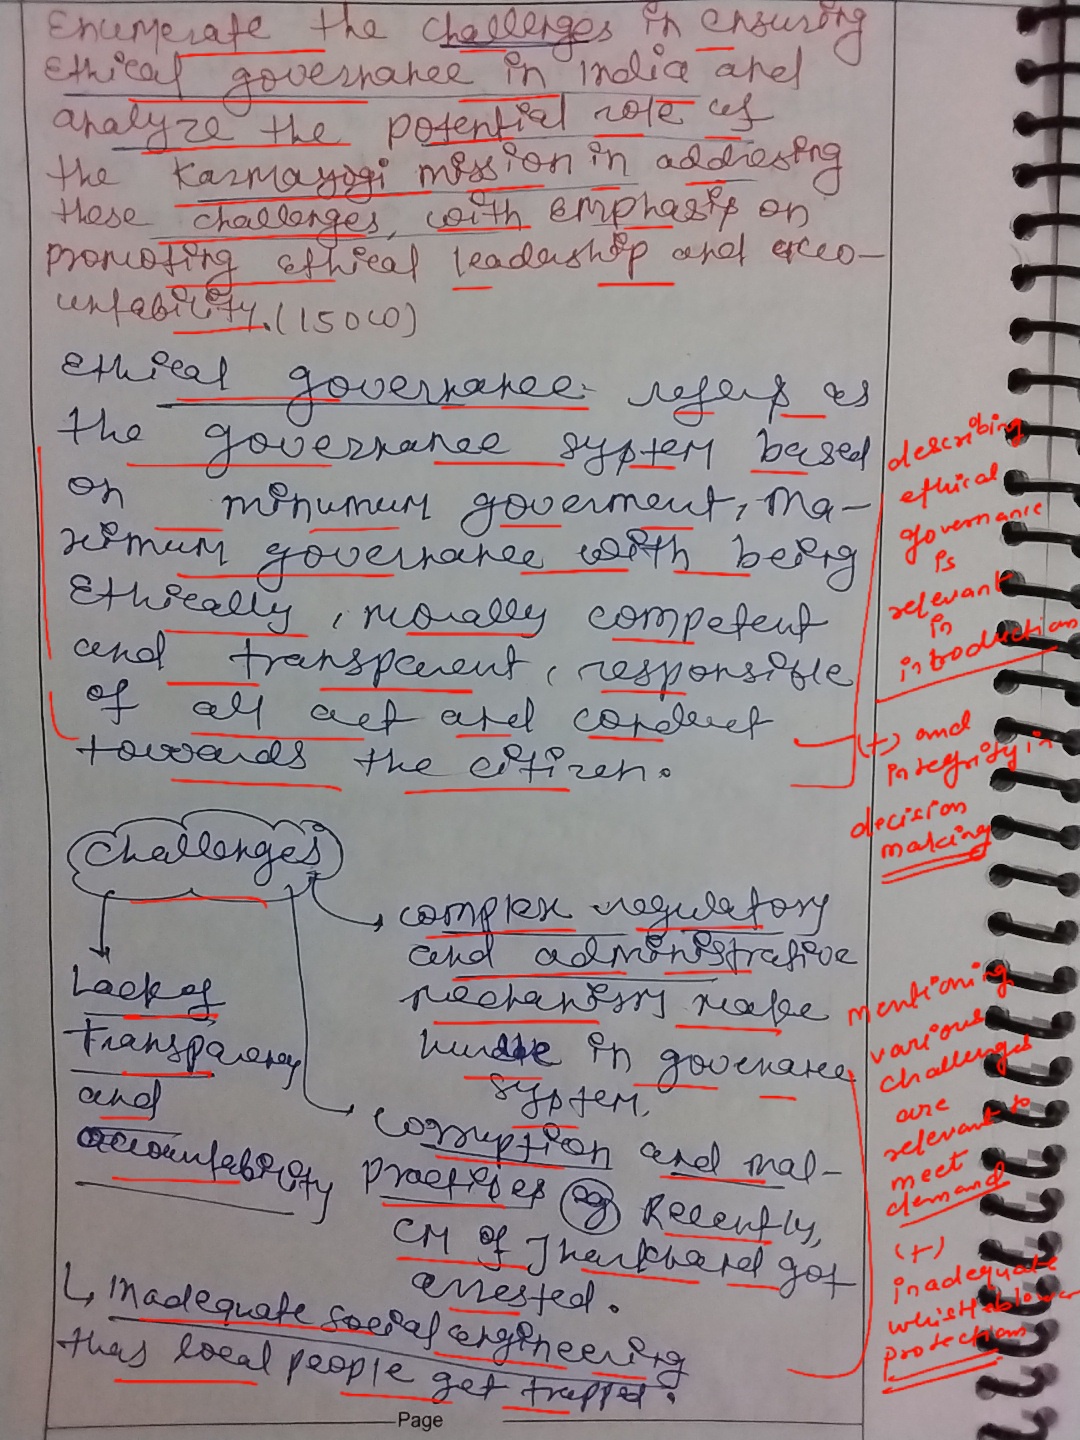 Enumerate the challenges in ensuring
Ethical governance in India and
analyze the potential role of
the Karmayogi mission in addresing
these challenges, with emphasis on
promoting ethical leadership and acco-
untability. (150W)
Ethical governance refers as
the governance system based
on minumum goverment, Ma-
ximum governance with being
Ethically, morally competent
and transparent, responsible
of all act and conduct
towards the citizen.
describing
ethical
governance
is
relevant
in
introduction
(+) and
integrity in
decision
making
Challenges
complex regulatory
and administrative
mechanism make
hurdle in governance
system.
Lack of
transparency
and
accountability
corruption and mal-
practises eg Recently,
CM of Jharkhand got
arrested.
Inadequate social engineering
thas local people get trapped.
mentioning
various
challenges
are
relevant to
meet
demand
(+)
inadequate
whistleblower
protection
Page